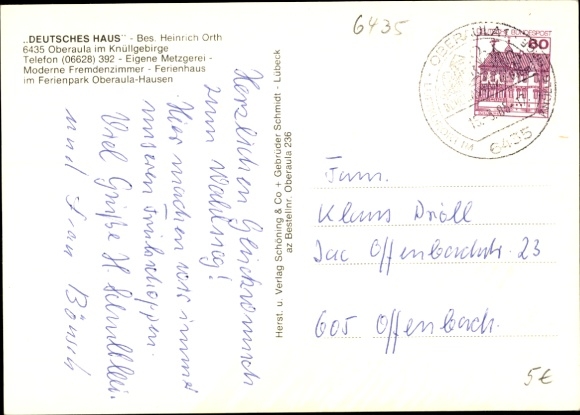 „DEUTSCHES HAUS" - Bes. Heinrich Orth
6435 Oberaula im Knüllgebirge
Telefon (06628) 392 - Eigene Metzgerei -
Moderne Fremdenzimmer - Ferienhaus
im Ferienpark Oberaula-Hausen
6435
OBERAULA
6435
DEUTSCHE BUNDESPOST
60
Herzlichen Glückwunsch
zum Wahlsieg!
Hier machen wir immer
unseren Frühschoppen.
Viel Grüße H.
und Frau
Herst. u. Verlag Schöning & Co + Gebrüder Schmidt - Lübeck
az Bestellnr. Oberaula 236
Fam.
Klaus Dröll
Jac Offenbachstr. 23
605 Offenbach.
5€